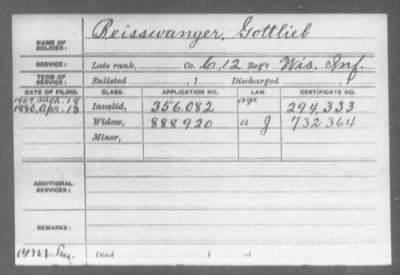 NAME OF SOLDIER: Reisswanger, Gottlieb
SERVICE: Late rank, Co. C, 12 Reg't Wis. Inf.
TERM OF SERVICE: Enlisted , 1 Discharged , 1
DATE OF FILING. CLASS. APPLICATION NO. LAW. CERTIFICATE NO.
1907 18
1880, Apr. 13 Invalid, 356.082 age 294.333
Widow, 888920 a J 732364
Minor,
ADDITIONAL SERVICES:
REMARKS:
Died , 1 at